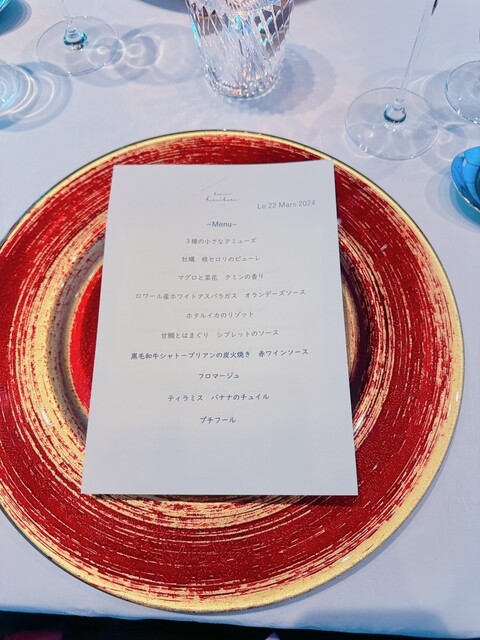 Le 22 Mars 2024
~Menu~
3種の小さなアミューズ
牡蠣　根セロリのピューレ
マグロと菜花　クミンの香り
ロワール産ホワイトアスパラガス　オランデーズソース
ホタルイカのリゾット
甘鯛とはまぐり　シブレットのソース
黒毛和牛シャトーブリアンの炭火焼き　赤ワインソース
フロマージュ
ティラミス　バナナのチュイル
プチフール